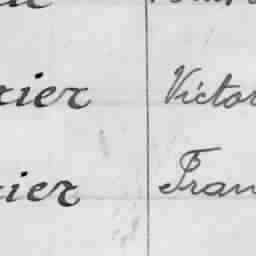 rier Victor
rier Fran